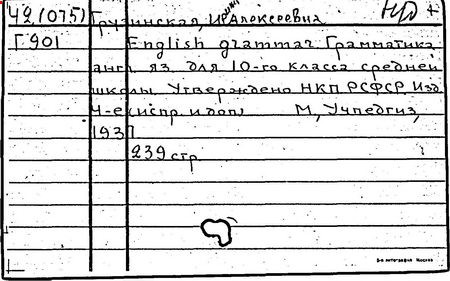 42(075) Грузинская, И. Алексеевна
Г901 English grammar Грамматика
англ яз для 10-го класса средней
школы. Утверждено НКП РСФСР. Изд.
4-е (испр. и доп) М, Учпедгиз,
1937
239 стр